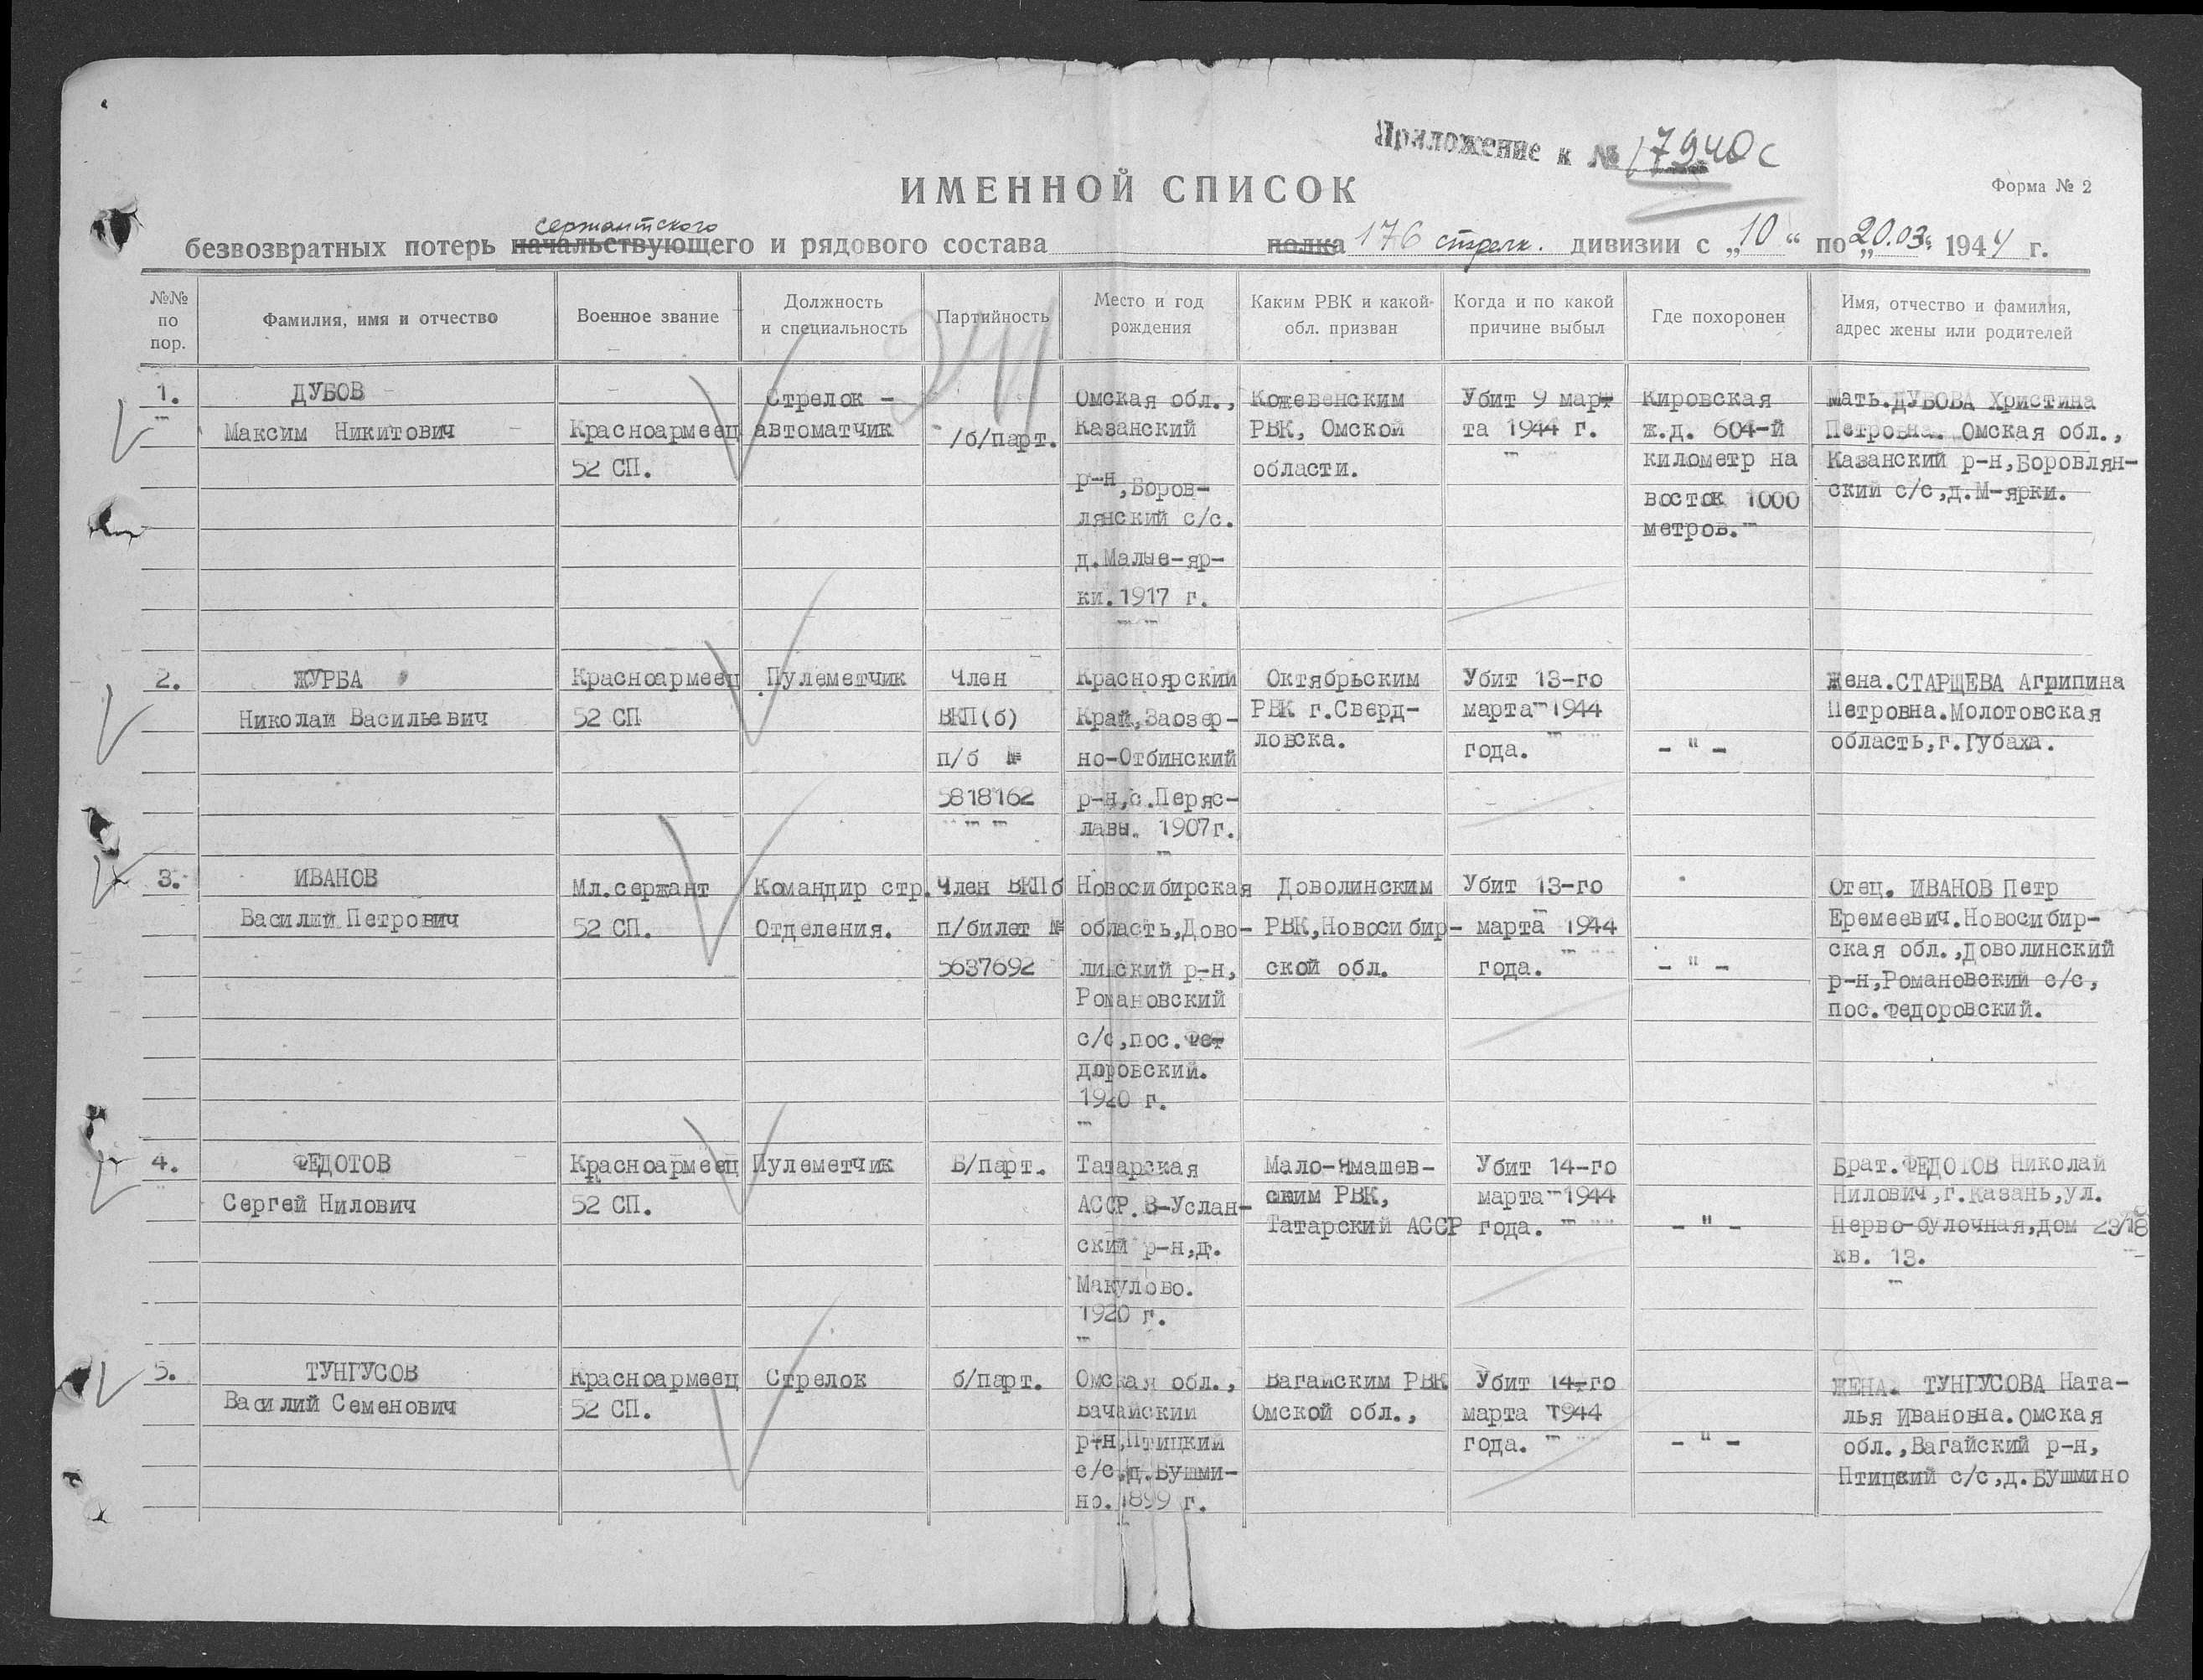 Приложение к № 17940с
ИМЕННОЙ СПИСОК
Форма № 2
сержантского
безвозвратных потерь начальствующего и рядового состава полка 176 стрелк. дивизии с „10“ по „20.03“ 1944 г.
№№ по пор.
Фамилия, имя и отчество
Военное звание
Должность и специальность
Партийность
Место и год рождения
Каким РВК и какой обл. призван
Когда и по какой причине выбыл
Где похоронен
Имя, отчество и фамилия, адрес жены или родителей
1.
ДУБОВ
Максим Никитович
Красноармеец
52 СП.
Стрелок -
автоматчик
/б/парт.
Омская обл.,
Казанский
р-н,Боров-
лянский с/с.
д.Малые-яр-
ки.1917 г.
Кожевенским
РВК, Омской
области.
Убит 9 мар-
та 1944 г.
Кировская
ж.д. 604-й
километр на
восток 1000
метров.
Мать.ДУБОВА Христина
Петровна. Омская обл.,
Казанский р-н,Боровлян-
ский с/с,д.М-ярки.
2.
ЖУРБА
Николай Васильевич
Красноармеец
52 СП
Пулеметчик
Член
ВКП(б)
п/б №
5818162
Красноярский
Край,Заозер-
но-Отбинский
р-н,с.Перяс-
лавы. 1907г.
Октябрьским
РВК г.Сверд-
ловска.
Убит 13-го
марта 1944
года.
- " -
Жена.СТАРЩЕВА Агрипина
Петровна.Молотовская
область,г.Губаха.
3.
ИВАНОВ
Василий Петрович
Мл.сержант
52 СП.
Командир стр.
Отделения.
Член ВКПб
п/билет №
5637692
Новосибирская
область,Дово-
линский р-н,
Романовский
с/с,пос.Фе-
доровский.
1920 г.
Доволинским
РВК,Новосибир-
ской обл.
Убит 13-го
марта 1944
года.
- " -
Отец. ИВАНОВ Петр
Еремеевич.Новосибир-
ская обл.,Доволинский
р-н,Романовский с/с,
пос.Федоровский.
4.
ФЕДОТОВ
Сергей Нилович
Красноармеец
52 СП.
Пулеметчик
Б/парт.
Татарская
АССР.В-Услан-
ский р-н,д.
Макулово.
1920 г.
Мало-Ямашев-
ским РВК,
Татарский АССР
Убит 14-го
марта 1944
года.
- " -
Брат.ФЕДОТОВ Николай
Нилович,г.Казань,ул.
Перво-булочная,дом 23/18
кв. 13.
5.
ТУНГУСОВ
Василий Семенович
Красноармеец
52 СП.
Стрелок
б/парт.
Омская обл.,
Вачайский
р-н,Птицкий
с/с.д.Бушми-
но.1899 г.
Вагайским РВК
Омской обл.,
Убит 14-го
марта 1944
года.
- " -
ЖЕНА. ТУНГУСОВА Ната-
лья Ивановна.Омская
обл.,Вагайский р-н,
Птицкий с/с,д.Бушмино